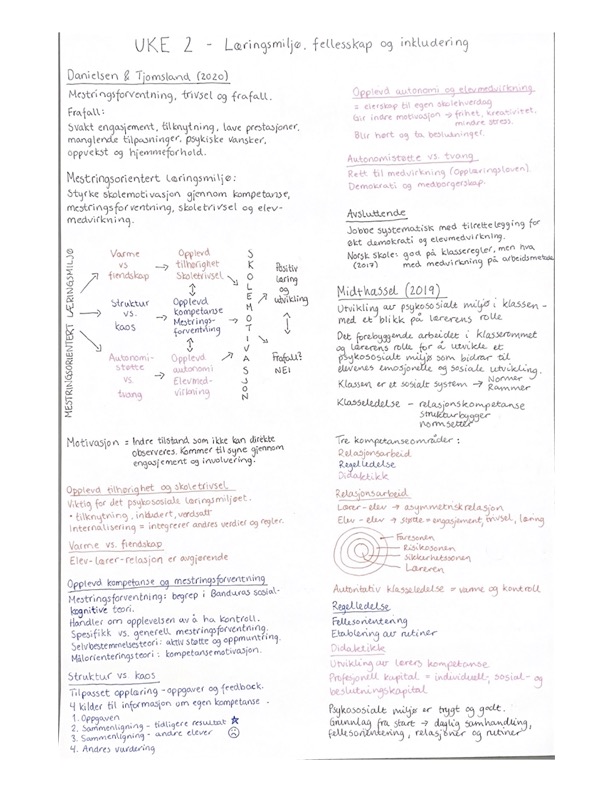 UKE 2 - Læringsmiljø, fellesskap og inkludering
Danielsen & Tjomsland (2020)
Mestringsforventning, trivsel og frafall.
Frafall:
Svakt engasjement, tilknytning, lave prestasjoner,
manglende tilpasninger, psykiske vansker,
oppvekst og hjemmeforhold.
Mestringsorientert læringsmiljø:
Styrke skolemotivasjon gjennom kompetanse,
mestringsforventning, skoletrivsel og elev-
medvirkning.
MESTRINGSORIENTERT LÆRINGSMILJØ
Varme
vs
fiendskap
Opplevd
tilhørighet
Skoletrivsel
Struktur
vs.
kaos
Opplevd
kompetanse
Mestrings-
forventning
Autonomi-
støtte
vs.
tvang
Opplevd
autonomi
Elevmed-
virkning
SKOLEMOTIVASJON
Positiv
læring
og
utvikling
Frafall?
NEI
Motivasjon = Indre tilstand som ikke kan direkte
observeres. Kommer til syne gjennom
engasjement og involvering.
Opplevd tilhørighet og skoletrivsel
Viktig for det psykososiale læringsmiljøet.
• tilknytning, inkludert, verdsatt
Internalisering = integrerer andres verdier og regler.
Varme vs. fiendskap
Elev-lærer-relasjon er avgjørende
Opplevd kompetanse og mestringsforventning
Mestringsforventning: begrep i Banduras sosial-
kognitive teori.
Handler om opplevelsen av å ha kontroll.
Spesifikk vs. generell mestringsforventning.
Selvbestemmelsesteori: aktiv støtte og oppmuntring.
Målorienteringsteori: kompetansemotivasjon.
Struktur vs. kaos
Tilpasset opplæring - oppgaver og feedback.
4 kilder til informasjon om egen kompetanse.
1. Oppgaven
2. Sammenligning - tidligere resultat
3. Sammenligning - andre elever
4. Andres vurdering
Opplevd autonomi og elevmedvirkning
= eierskap til egen skolehverdag
Gir indre motivasjon → frihet, kreativitet,
mindre stress.
Blir hørt og ta beslutninger.
Autonomistøtte vs. tvang
Rett til medvirkning (Opplæringsloven)
Demokrati og medborgerskap.
Avsluttende
Jobbe systematisk med tilrettelegging for
økt demokrati og elevmedvirkning.
Norsk skole: god på klasseregler, men hva
(2017) med medvirkning på arbeidsmetoder
Midthassel (2019)
Utvikling av psykososialt miljø i klassen -
med et blikk på lærerens rolle
Det forebyggende arbeidet i klasserommet
og lærerens rolle for å utvikle et
psykososialt miljø som bidrar til
elevenes emosjonelle og sosiale utvikling.
Klassen er et sosialt system → Normer
Rammer
Klasseledelse - relasjonskompetanse
strukturbygger
normsetter
Tre kompetanseområder:
Relasjonsarbeid
Regelledelse
Didaktikk
Relasjonsarbeid
Lærer-elev → asymmetrisk relasjon
Elev-elev → støtte = engasjement, trivsel, læring
Faresonen
Risikosonen
Sikkerhetssonen
Læreren
Autoritativ klasseledelse = varme og kontroll
Regelledelse
Fellesorientering
Etablering av rutiner
Didaktikk
Utvikling av lærers kompetanse
Profesjonell kapital = individuell-, sosial- og
beslutningskapital
Psykososialt miljø er trygt og godt.
Grunnlag fra start → daglig samhandling,
fellesorientering, relasjoner og rutiner